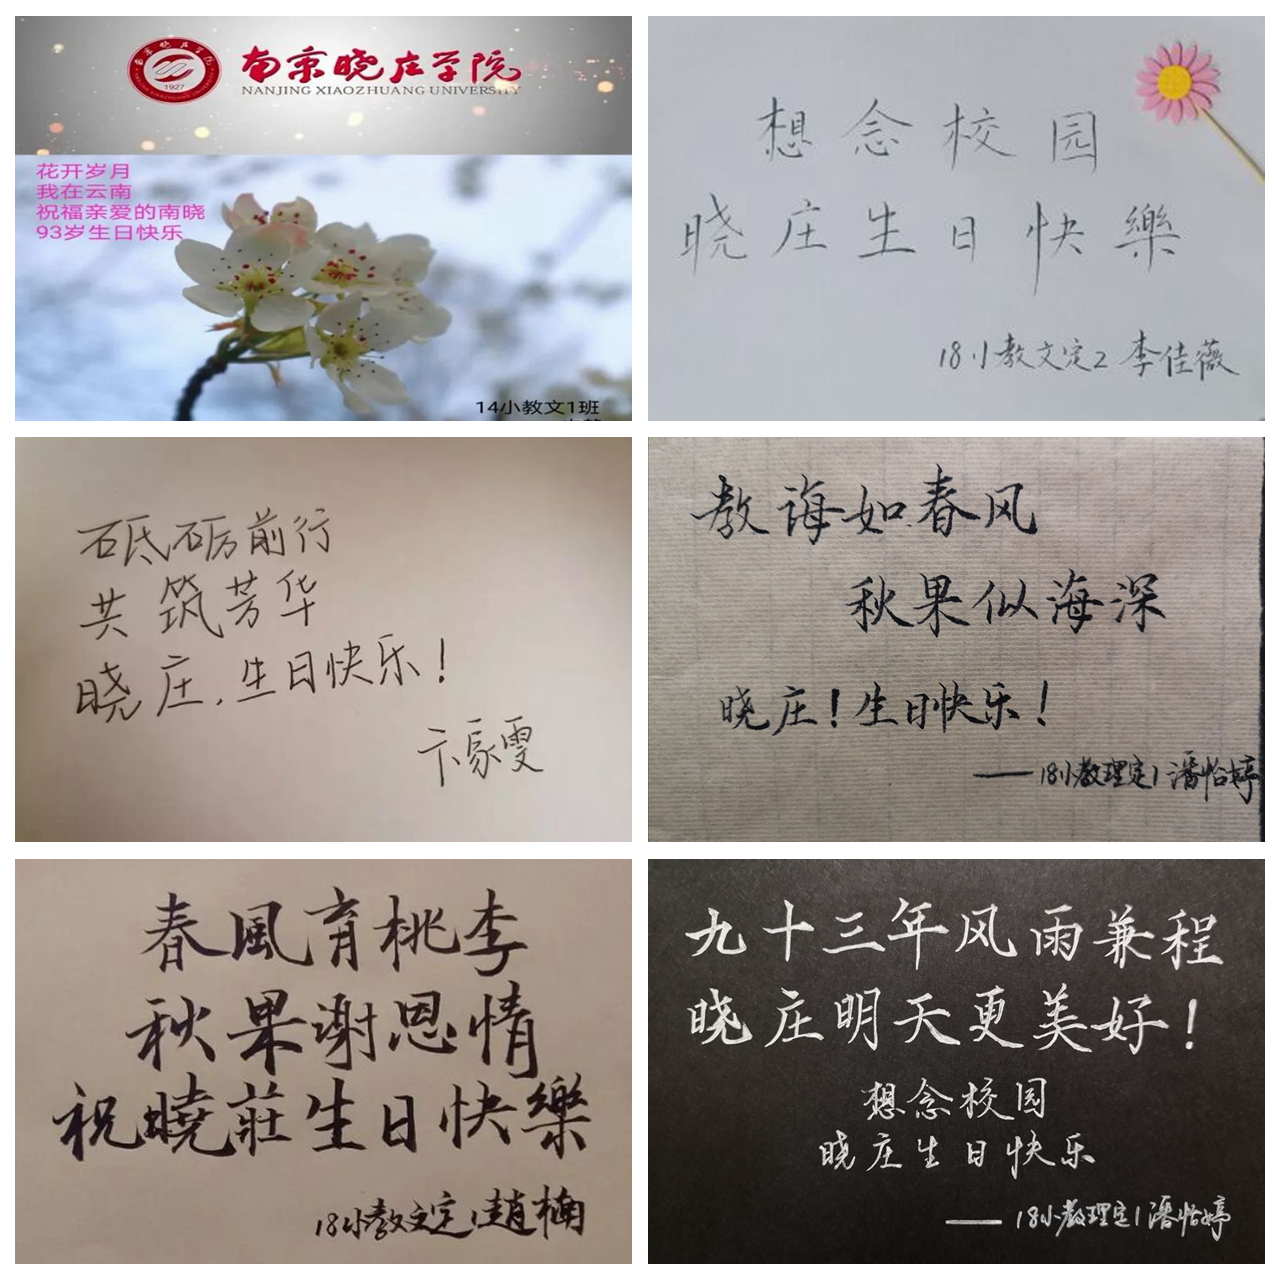 南京晓庄学院
1927
NANJING XIAOZHUANG UNIVERSITY
花开岁月
我在云南
祝福亲爱的南晓
93岁生日快乐
14小教文1班
想念校园
晓庄生日快樂
18小教文定2 李佳薇
砥砺前行
共筑芳华
晓庄,生日快乐!
卞家雯
教诲如春风
秋果似海深
晓庄!生日快乐!
——18小教理定1潘怡婷
春風育桃李
秋果谢恩情
祝曉莊生日快樂
18小教文定1趙楠
九十三年风雨兼程
晓庄明天更美好!
想念校园
晓庄生日快乐
——18小教理定1潘怡婷